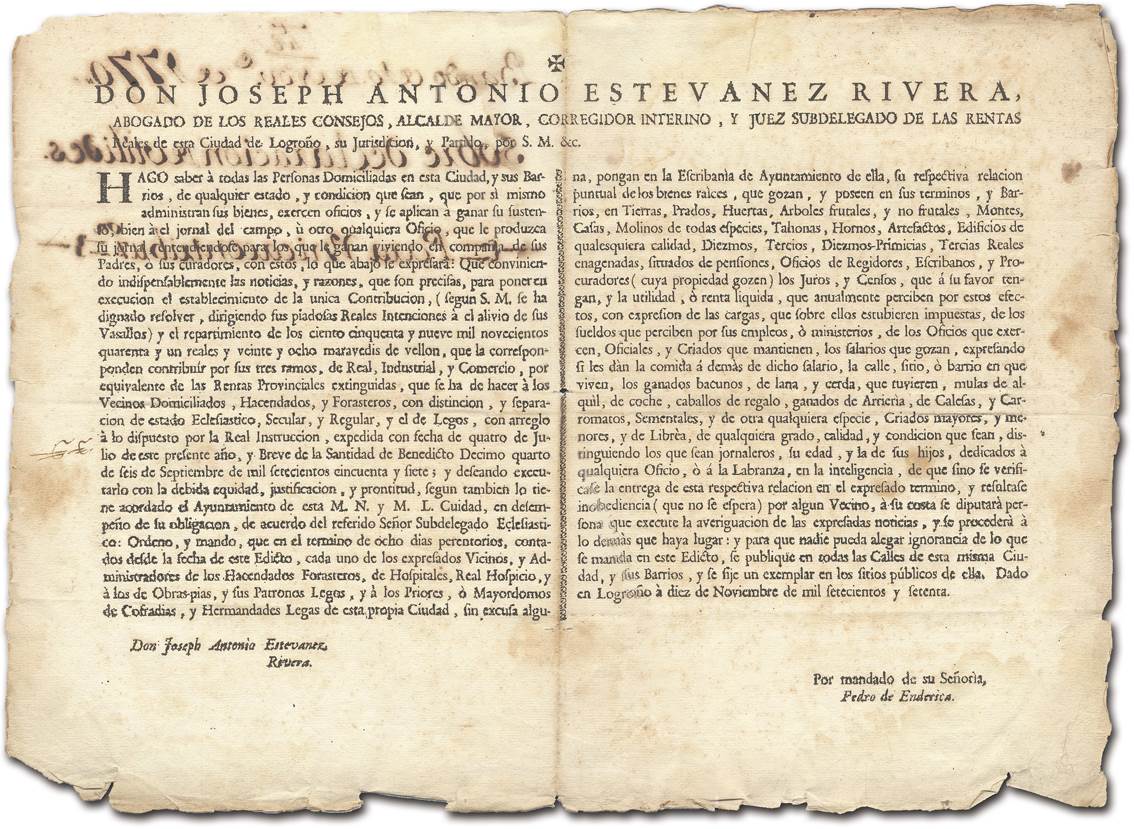 DON JOSEPH ANTONIO ESTEVANEZ RIVERA,
ABOGADO DE LOS REALES CONSEJOS, ALCALDE MAYOR, CORREGIDOR INTERINO, Y JUEZ SUBDELEGADO DE LAS RENTAS
Reales de esta Ciudad de Logroño, su Jurisdicion, y Partido, por S. M. &c.
HAGO saber à todas las Personas Domiciliadas en esta Ciudad, y sus Bar-
rios, de qualquier estado, y condicion que sean, que por sì mismo
administran sus bienes, exercen oficios, y se aplican à ganar su susten-
to, bien à el jornal del campo, ù otro qualquiera Oficio, que le produzca
su jornal entendiendose para los que le ganan viviendo en compañia de sus
Padres, ò sus curadores, con estos, lo que abajo se expresarà: Que convinien-
do indispensablemente las noticias, y razones, que son precisas, para poner en
execucion el establecimiento de la unica Contribucion, (segun S. M. se ha
dignado resolver, dirigiendo sus piadosas Reales Intenciones à el alivio de sus
Vasallos) y el repartimiento de los ciento cinquenta y nueve mil novecientos
quarenta y un reales y veinte y ocho maravedis de vellon, que la correspon-
ponden contribuir por sus tres ramos, de Real, Industrial, y Comercio, por
equivalente de las Rentas Provinciales extinguidas, que se ha de hacer à los
Vecinos Domiciliados, Hacendados, y Forasteros, con distincion, y separa-
cion de estado Eclesiastico, Secular, y Regular, y el de Legos, con arreglo
à lo dispuesto por la Real Instruccion, expedida con fecha de quatro de Ju-
lio de este presente año, y Breve de la Santidad de Benedicto Decimo quarto
de seis de Septiembre de mil setecientos cincuenta y siete; y deseando execu-
tarlo con la debida equidad, justificacion, y prontitud, segun tambien lo tie-
ne acordado el Ayuntamiento de esta M. N. y M. L. Cuidad, en desem-
peño de su obligacion, de acuerdo del referido Señor Subdelegado Eclesiasti-
co: Ordeno, y mando, que en el termino de ocho dias perentorios, conta-
dos desde la fecha de este Edicto, cada uno de los expresados Vicinos, y Ad-
ministradores de los Hacendados Forasteros, de Hospitales, Real Hospicio, y
à los de Obras-pias, y sus Patronos Legos, y à los Priores, ò Mayordomos
de Cofradias, y Hermandades Legas de esta propia Ciudad, sin excusa algu-
na, pongan en la Escribanìa de Ayuntamiento de ella, su respectiva relacion
puntual de los bienes raìces, que gozan, y poseen en sus terminos, y Bar-
rios, en Tierras, Prados, Huertas, Arboles frutales, y no frutales, Montes,
Casas, Molinos de todas especies, Tahonas, Hornos, Artefactos, Edificios de
qualesquiera calidad, Diezmos, Tercios, Diezmos-Primicias, Tercias Reales
enagenadas, situados de pensiones, Oficios de Regidores, Escribanos, y Pro-
curadores (cuya propiedad gozen) los Juros, y Censos, que á su favor ten-
gan, y la utilidad, ò renta liquida, que anualmente perciben por estos efec-
tos, con expresion de las cargas, que sobre ellos estubieren impuestas, de los
sueldos que perciben por sus empleos, ò ministerios, de los Oficios que exer-
cen, Oficiales, y Criados que mantienen, los salarios que gozan, expresando
si les dàn la comida á demás de dicho salario, la calle, sitio, ò barrio en que
viven, los ganados bacunos, de lana, y cerda, que tuvieren, mulas de al-
quil, de coche, caballos de regalo, ganados de Arrierìa, de Calesas, y Car-
romatos, Sementales, y de otra qualquiera especie, Criados mayores, y me-
nores, y de Librèa, de qualquiera grado, calidad, y condicion que sean, dis-
tinguiendo los que sean jornaleros, su edad, y la de sus hijos, dedicados à
qualquiera Oficio, ò á la Labranza, en la inteligencia, de que sino se verifi-
case la entrega de esta respectiva relacion en el expresado termino, y resultase
inobediencia (que no se espera) por algun Vecino, à su costa se diputarà per-
sona que execute la averiguacion de las expresadas noticias, y se procederà à
lo demàs que haya lugar: y para que nadie pueda alegar ignorancia de lo que
se manda en este Edicto, se publique en todas las Calles de esta misma Ciu-
dad, y sus Barrios, y se fije un exemplar en los sitios públicos de ella. Dado
en Logroño à diez de Noviembre de mil setecientos y setenta.
Don Joseph Antonio Estevanez,
Rivera.
Por mandado de su Señorìa,
Pedro de Enderica.